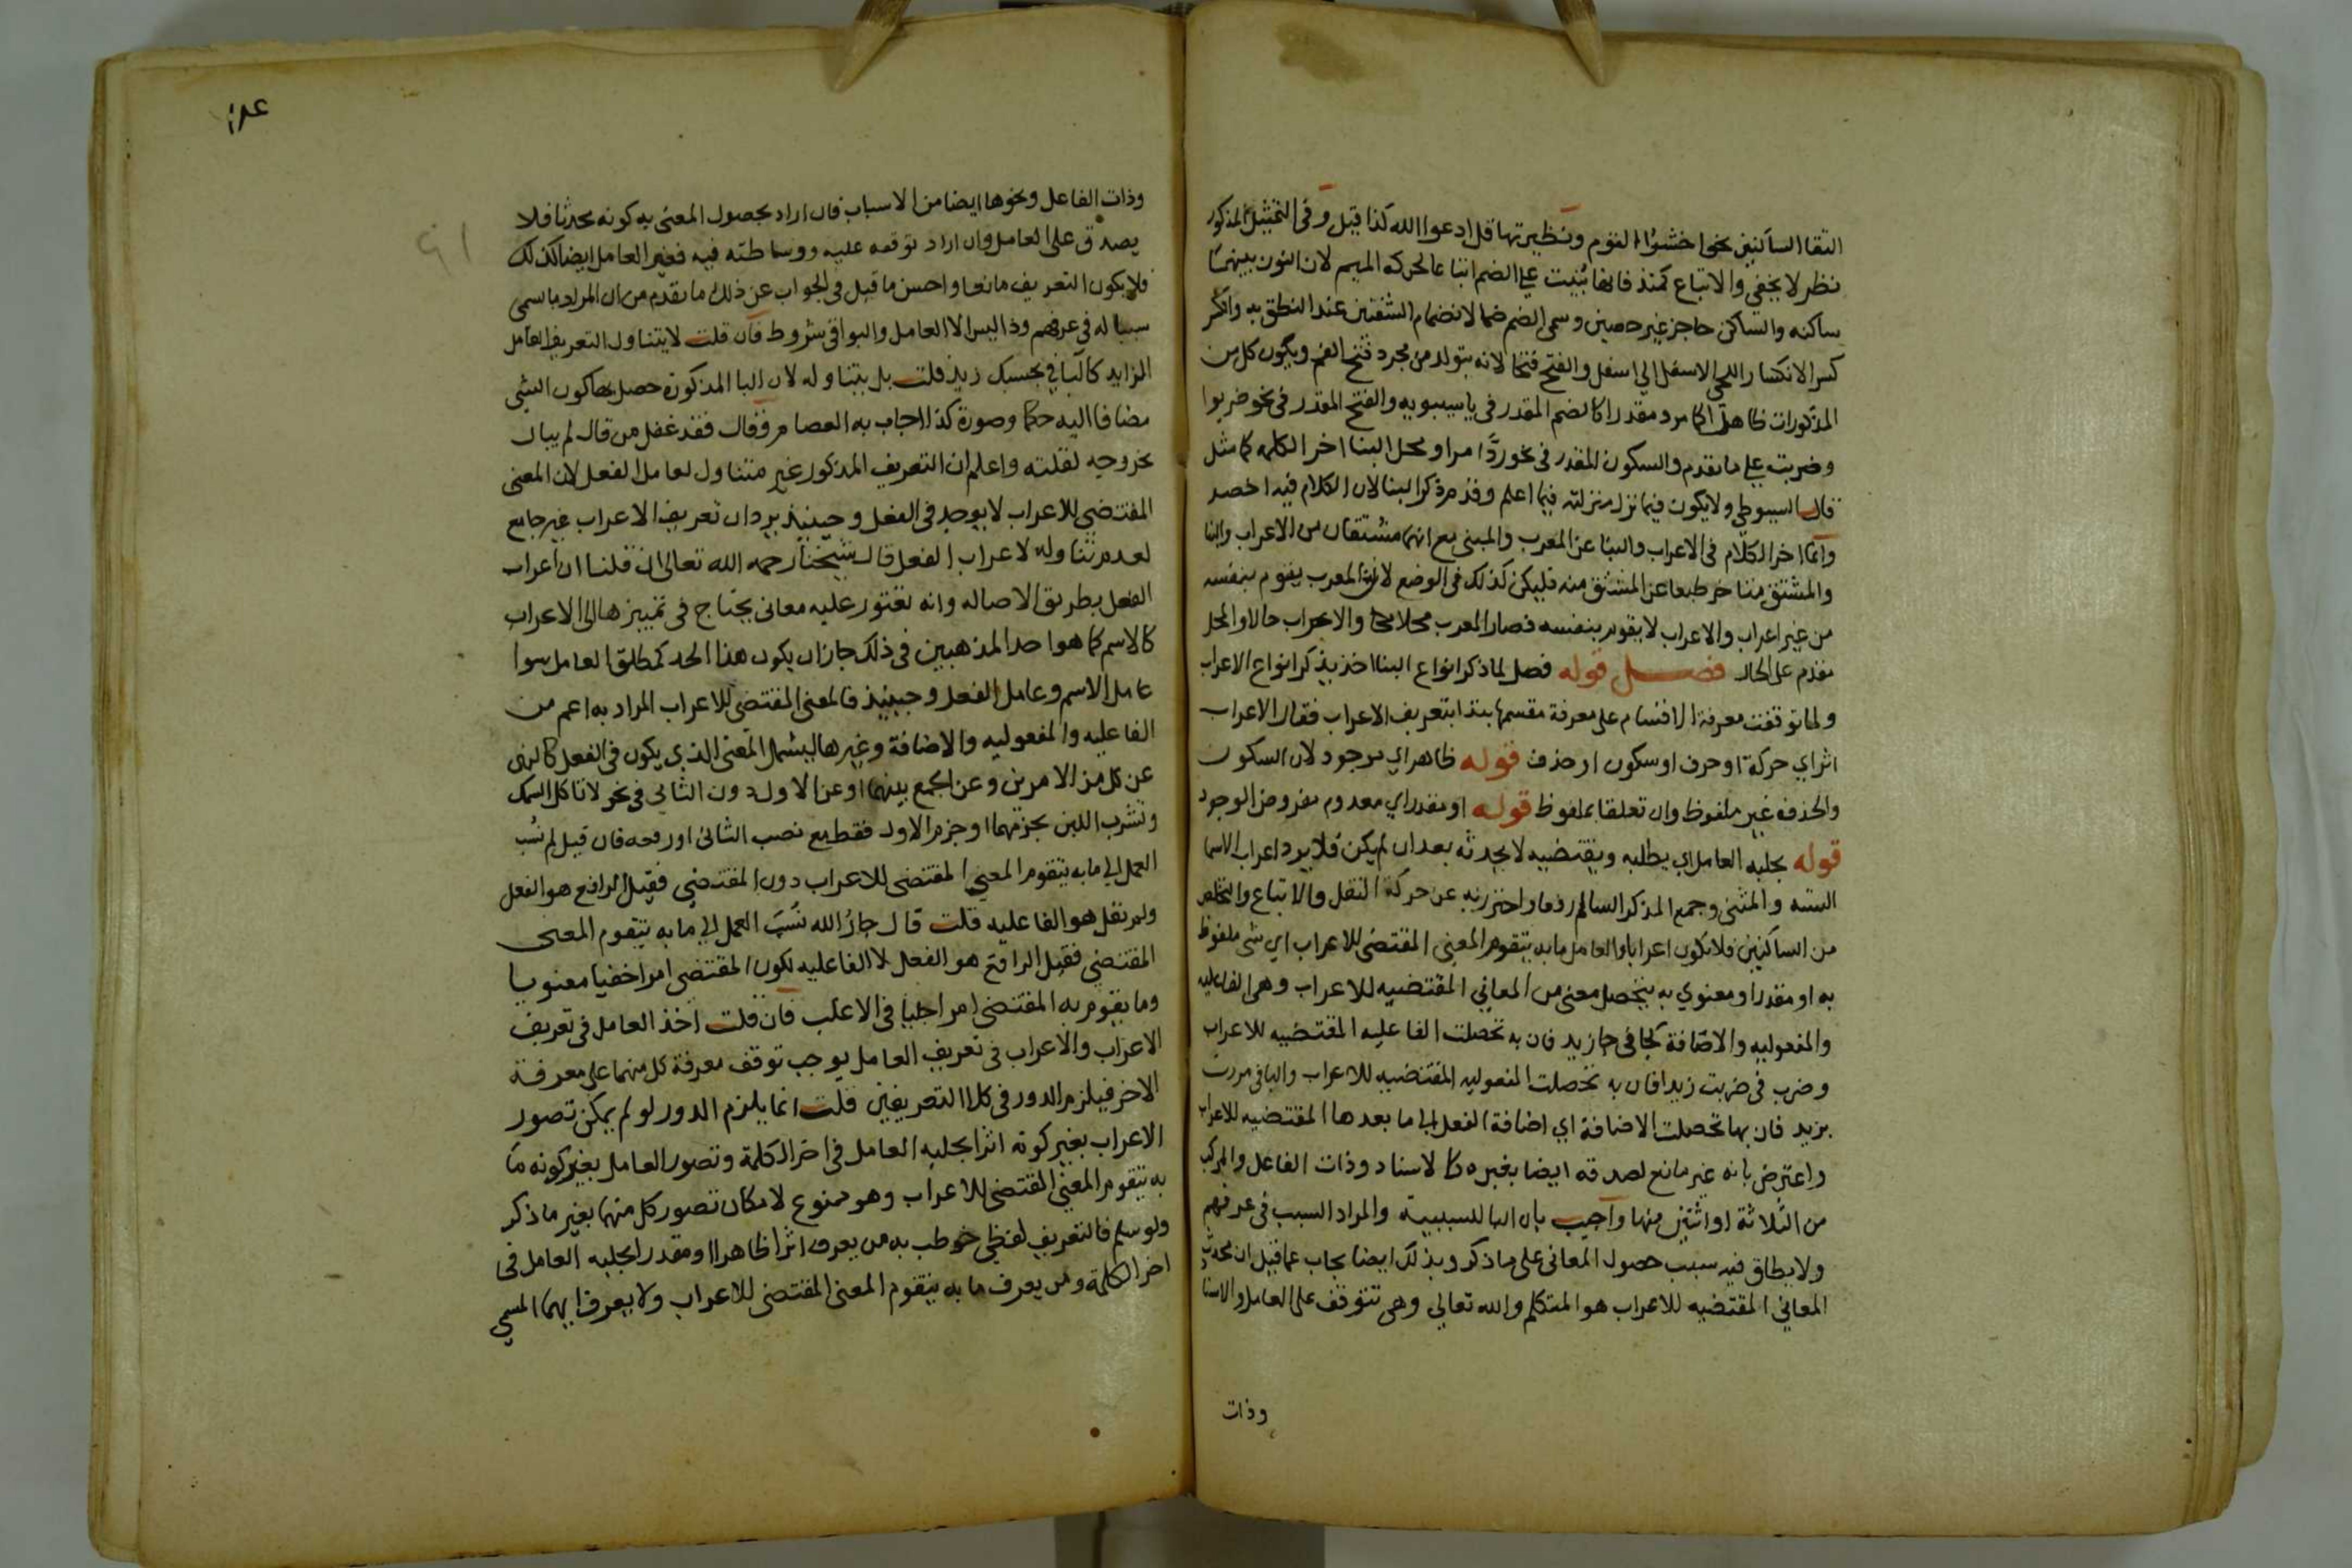 التقا الساكنين نحو اخشوا القوم ونظيرتها قل ادعوا الله كذا قيل وفي التمثيل المذكور
نظر لا يخفي والاتباع كمنذ فانها بنيت علي الضم اتباعا لحركة الميم لان النون بينهما
ساكنه والساكن حاجز غير حصين وسمي الضم ضما لانضمام الشفتين عند النطق به والكسر
كسرا لانكسار اللحي الاسفل الي اسفل والفتح فتحا لانه يتولد من مجرد فتح الفم ويكون كل من
المذكورات ظاهرا كما مر ومقدرا كالضم المقدر في يا سيبويه والفتح المقدر في نحو ضربوا
وضربت علي ما تقدم والسكون المقدر في نحو رد امرا ومحل البنا اخر الكلمه كما مثل
قال السيوطي ولا يكون فيما نزل منزلته فيما اعلم وقد مر ذكر البنا لان الكلام فيه اخصر
وانما اخر الكلام في الاعراب والبنا عن المعرب والمبني مع انهما مشتقان من الاعراب والبنا
والمشتق متاخر طبعا عن المشتق منه فليكن كذلك في الوضع لان المعرب يقوم بنفسه
من غير اعراب والاعراب لا يقوم بنفسه فصار المعرب محلا والاعراب حالا والمحل
مقدم علي الحال فصل قوله فصل لما ذكر انواع البنا اخذ يذكر انواع الاعراب
ولما توقفت معرفة الاقسام علي معرفة مقسمها بتدا بتعريف الاعراب فقال الاعراب
اثر اي حركة او حرف او سكون او حذف قوله ظاهر اي موجود لان السكون
والحذف غير ملفوظ وان تعلقا بملفوظ قوله او مقدر اي معدوم مفروض الوجود
قوله يجلبه العامل اي يطلبه ويقتضيه لا يحدثه بعد ان لم يكن فلا يرد اعراب الاسما
السته والمثني وجمع المذكر السالم رفعا واحترز به عن حركة النقل والاتباع والتخلص
من الساكنين فلا تكون اعرابا والعامل ما به يتقوم المعني المقتضي للاعراب اي شي ملفوظ
به او مقدر او معنوي به يتحصل معني من المعاني المقتضيه للاعراب وهي الفاعليه
والمفعوليه والاضافة كجا في جا زيد فان به تحصلت الفاعليه المقتضيه للاعراب
وضرب في ضربت زيدا فان به تحصلت المفعوليه المقتضيه للاعراب والبا في مررت
بزيد فان بها تحصلت الاضافة اي اضافة الفعل الي ما بعدها المقتضيه للاعراب
واعترض بانه غير مانع لصدقه ايضا بغيره كالاسناد وذات الفاعل والمركب
من الثلاثة او اثنين منها واجيب بان البا للسببية والمراد السبب في عرفهم
ولا يطلق فيه سبب حصول المعاني علي ما ذكر وبذلك ايضا يجاب عما قيل ان محدث
المعاني المقتضيه للاعراب هو المتكلم والله تعالي وهي تتوقف علي العامل والاسنا
وذات
وذات الفاعل ونحوها ايضا من الاسباب فان اراد بحصول المعني به كونه محدثا فلا
يصدق علي العامل وان اراد توقفه عليه ووساطته فيه فغير العامل ايضا كذلك
فلا يكون التعريف مانعا واحسن ما قيل في الجواب عن ذلك ما تقدم من ان المراد ما سمي
سببا له في عرفهم وذا ليس الا العامل والبواقي شروط فان قلت لا يتناول التعريف العامل
الزايد كالبا في بحسبك زيد قلت بل يتناوله لان البا المذكورة حصل بها كون الشي
مضافا اليه حكما وصورة كذا اجاب به العصام وقال فقد غفل من قال لم يبال
بخروجه لقلته واعلم ان التعريف المذكور غير متناول لعامل الفعل لان المعني
المقتضي للاعراب لا يوجد في الفعل وحينئذ يرد ان تعريف الاعراب غير جامع
لعدم تناوله لاعراب الفعل قال شيخنا رحمه الله تعالي ان قلنا ان اعراب
الفعل بطريق الاصاله وانه تعتور عليه معاني يحتاج في تمييزها الي الاعراب
كالاسم كما هو احد المذهبين في ذلك جاز ان يكون هذا الحد لمطلق العامل سوا
عامل الاسم وعامل الفعل وحينئذ فالمعني المقتضي للاعراب المراد به اعم من
الفاعليه والمفعوليه والاضافة وغيرها ليشمل المعني الذي يكون في الفعل كالنهي
عن كل من الامرين وعن الجمع بينهما او عن الاول دون الثاني في نحو لا تاكل السمك
وتشرب اللبن بجزمهما او جزم الاول فقط مع نصب الثاني او رفعه فان قيل لم نسب
العمل الي ما به يتقوم المعني المقتضي للاعراب دون المقتضي فقيل الرافع هو الفعل
ولم نقل هو الفاعليه قلت قال جار الله نسب العمل الي ما به يتقوم المعني
المقتضي فقيل الرافع هو الفعل لا الفاعليه لكون المقتضي امرا خفيا معنويا
وما يقوم به المقتضي امرا جليا في الاغلب فان قلت اخذ العامل في تعريف
الاعراب والاعراب في تعريف العامل يوجب توقف معرفة كل منهما علي معرفة
الاخر فيلزم الدور في كلا التعريفين قلت انما يلزم الدور لو لم يمكن تصور
الاعراب بغير كونه اثرا يجلبه العامل في اخر الكلمة وتصور العامل بغير كونه ما
به يتقوم المعني المقتضي للاعراب وهو ممنوع لامكان تصور كل منهما بغير ما ذكر
ولو سلم فالتعريف لفظي خوطب به من يعرف اثرا ظاهرا او مقدرا يجلبه العامل في
اخر الكلمة ومن يعرف ما به يتقوم المعني المقتضي للاعراب ولا يعرف ايهما المسمي